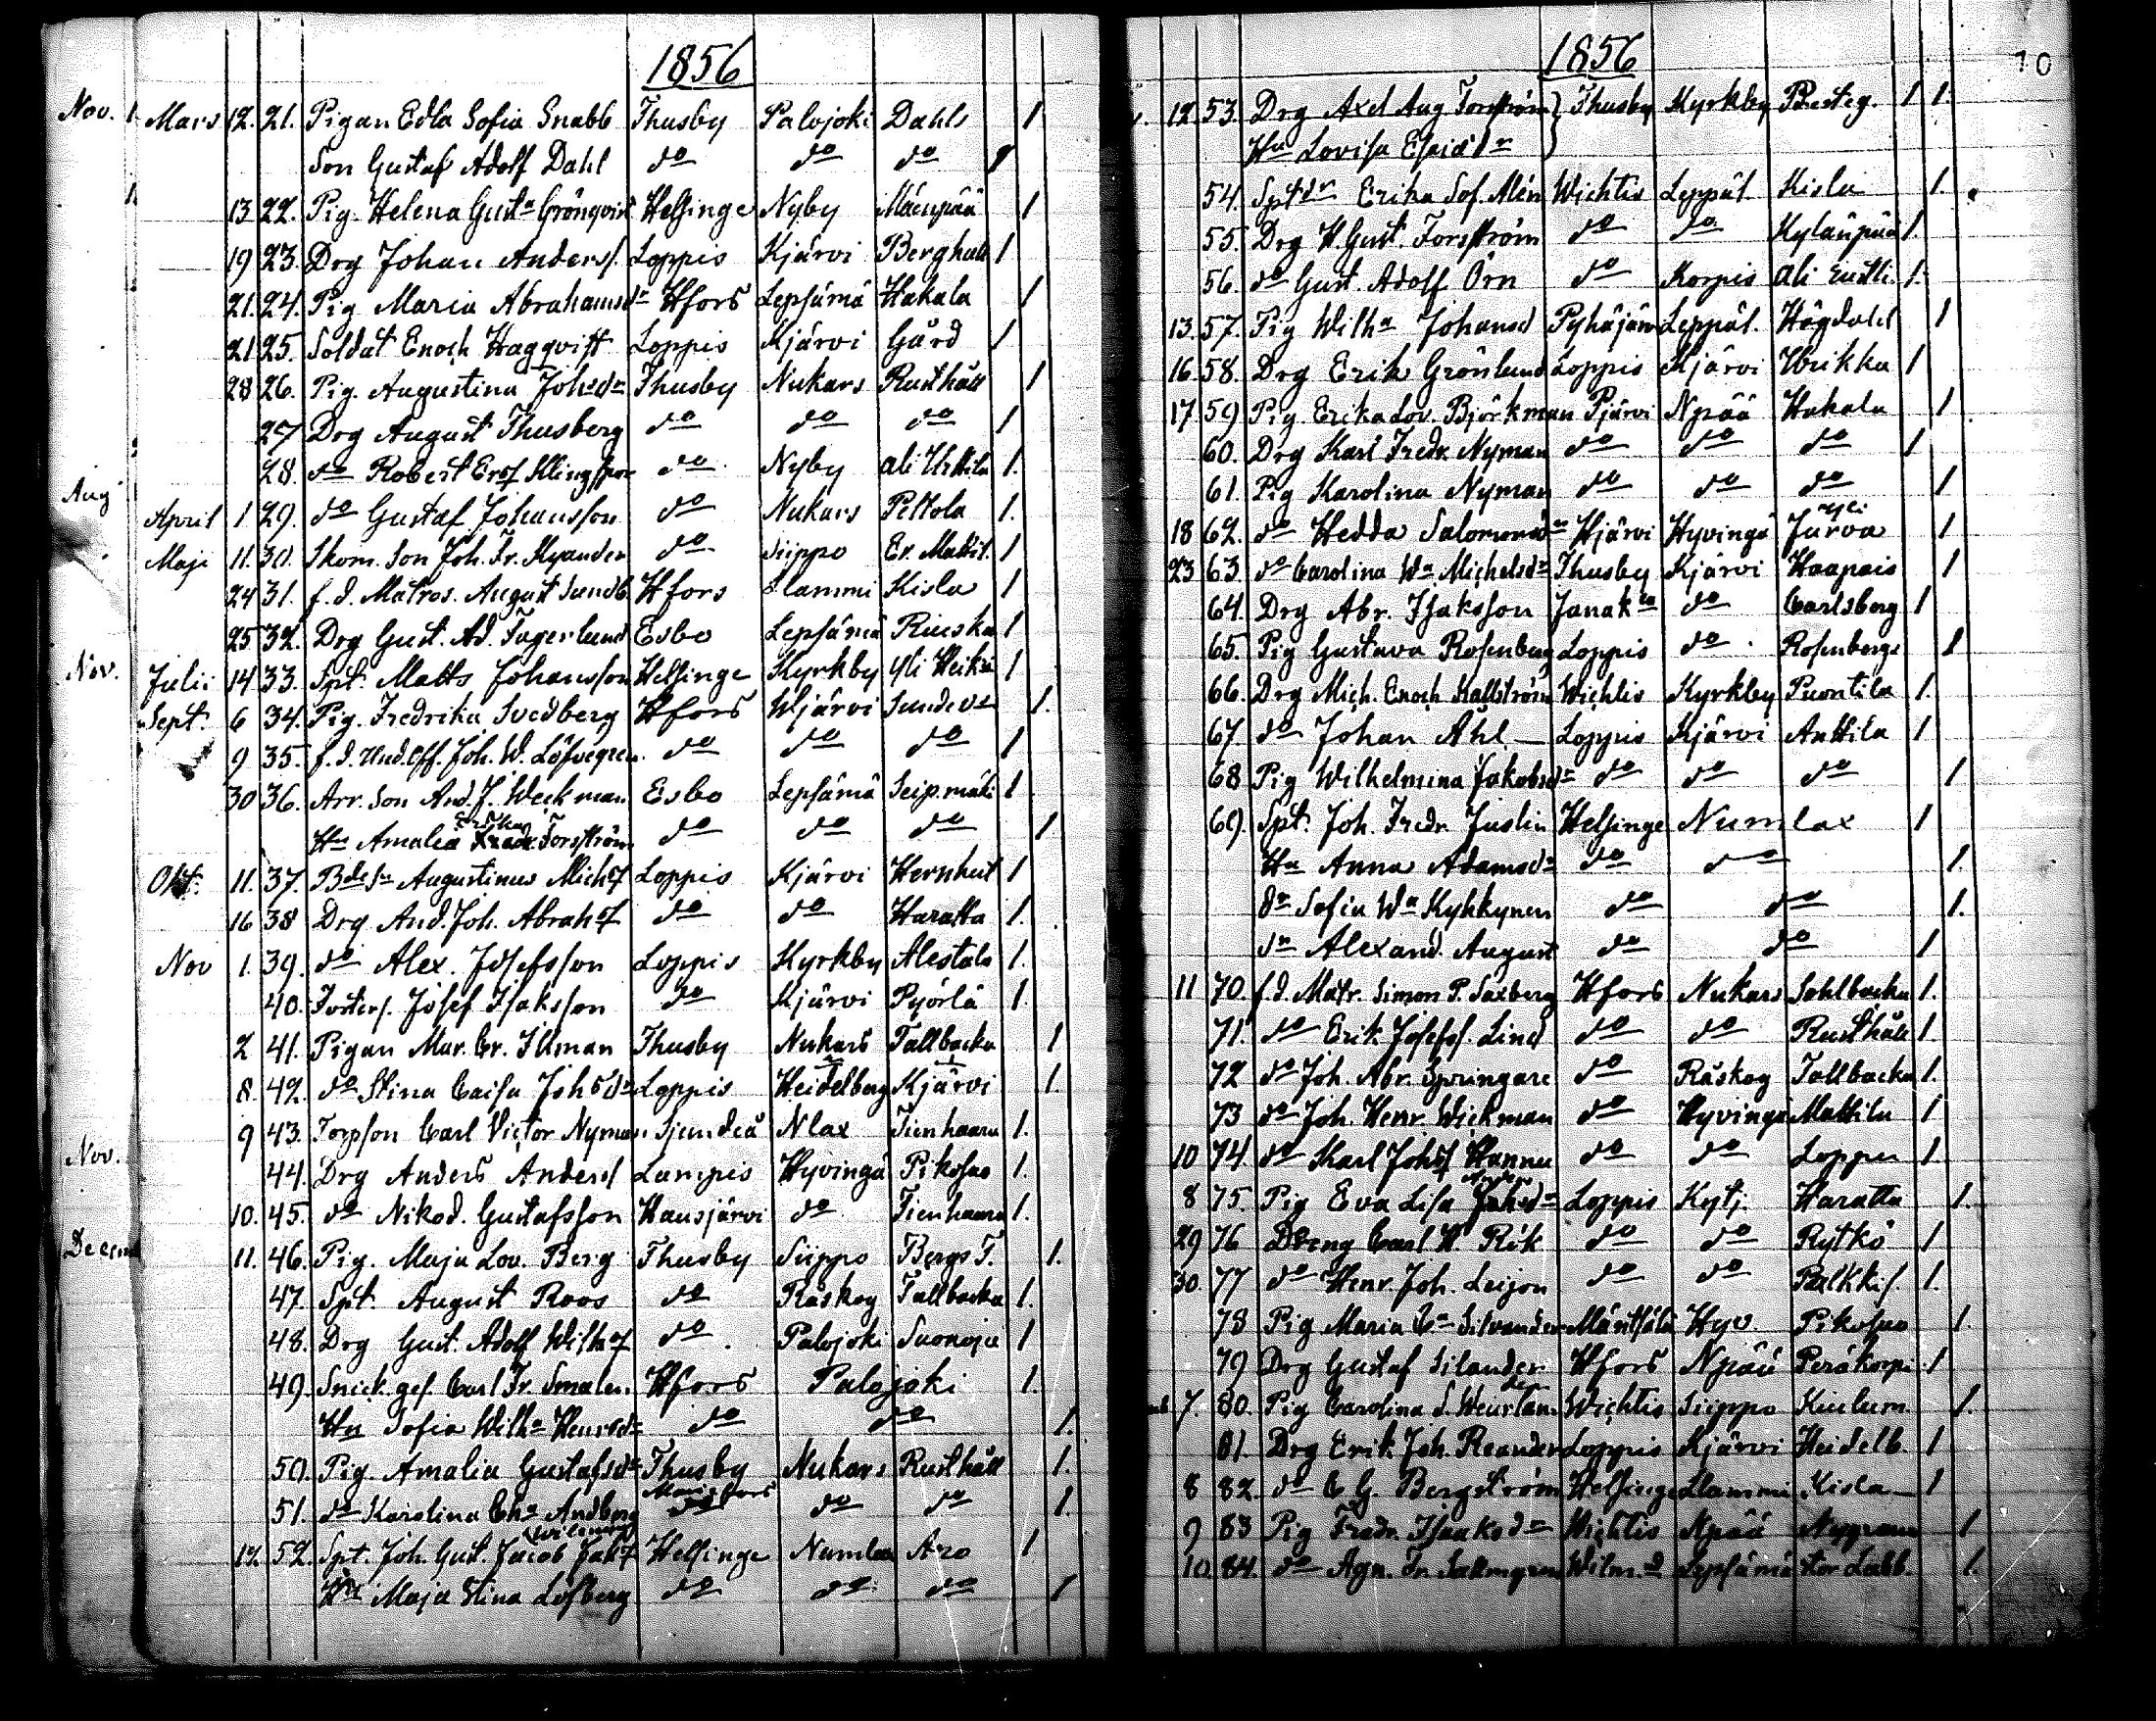 1856
Nov. 1
Mars 12. 21. Pigan Edla Sofia Snabb Thusby Palojoki Dahls 1
Son Gustaf Adolf Dahl do do do 1
13 22. Pig. Helena Gusta Grönqvist Helsinge Nyby Mäenpää 1
19 23. Drg Johan Anders. Loppis Kjärvi Berghäll 1
21. 24. Pig Maria Abrahamsdr Hfors Lepsämä Hakala 1
21 25. Soldat Enoch Haggvist Loppis Kjärvi Gård 1
28 26. Pig. Augustina Johsdr Thusby Nukars Rusthåll 1
27 Drg August Thusberg do do do 1
28. do Robert Ersf Klingspor do Nyby ali Uhtila 1.
Aug
April 1 29. do Gustaf Johansson do Nukars Peltola 1.
Maji 11. 30. Skom. Son Joh. Fr. Kyander do Siippo Er. Mattil. 1
24 31. f.d. Matros. August Sundb. Hfors Klammi Kisla 1
25 32. Drg Gust. Ad. Fagerlund Esbo Lepsämä Rieska 1
Nov.
Julii 14 33. Spt. Matts Johansson Helsinge Kyrkby Yli Heik 1
Sept. 6 34. Pig. Fredrika Svedberg Hfors Wjärvi 1.
9 35. f.d. Und.Off. Joh. W. Löfvegren do do do 1
30 36. Arr. Son And. J. Weckman Esbo Lepsämä Seip.mäki 1
Erika
Hu Amalia Forsström do do do 1.
Okt. 11. 37. Augustinus Michsf Loppis Kjärvi Hernhut 1
16 38 Drg And. Joh. Abrahsf do do Haratta 1.
Nov 1. 39. do Alex. Josefsson Loppis Kyrkby Alestalo 1.
40. Fosters. Josef Isaksson do Kjärvi Pyörlä 1.
2 41. Pigan Mar. Cr. Illman Thusby Nukars Tallbacka 1
8. 42. do Stina Caisa Johsdr Loppis Heidelberg Kjärvi 1.
9 43. Torpson Carl Victor Nyman Sjundeå Nlax Tienhaara 1.
Nov.
44. Drg Anders Anders Lampis Hyvingä Pikosuo 1.
10. 45. do Nikod. Gustafsson Hausjärvi do Tienhaara 1.
Decem
11. 46. Pig. Maja Lov. Berg Thusby Siippo Bergs T. 1.
47. Spt. August Roos do Råskog Tallbacka 1.
48. Drg Gust. Adolf Wilhsf do Palojoki Suonoja 1
49. Snick.ges. Carl Fr. Smalen. Hfors Palojoki 1.
Hu Sofia Wilha Henrsdr do do 1.
50. Pig. Amalia Gustafsdr Thusby Nukars Rusthåll 1.
51. do Karolina Andberg do do do 1.
12. 52. Spt. Joh. Gust. Jacob Jaksf Helsinge Numlax Aro 1
Hu Maja Stina Löfberg do do do 1
1856
10
12. 53. Drg Axel Aug Forsström } Thusby Kyrkby Presteg. 1 1.
Hu Lovisa Esaiædr
54. Sptdr Erika Sof. Alén Wichtis Leppäl. Kisla 1.
55. Drg H. Gust. Forsström do do Kylänpää 1.
56. do Gust. Adolf Örn do Korpis ali Entti. 1.
13. 57. Pig Wilha Johansd Pyhäjärvi Leppäl. Högdahl 1
16. 58. Drg Erik Grönlund Loppis Kjärvi Ukrikka 1
17. 59. Pig. Erika Lov. Björkman Pjärvi Npää Hakala 1
60. Drg Karl Fredr. Nyman do do do 1
61. Pig Karolina Nyman do do do 1
Yli
18 62. do Hedda Salomonsdr Hjärvi Hyvingä Jurva 1
23 63 do Carolina Wa Michelsdr Thusby Kjärvi Haapais 1
64. Drg Abr. Isaksson Janakla do Carlsberg 1
65. Pig Gustava Rosenberg Loppis do Rosenbergs 1
66. Drg Mich. Enoch Hallström Wichtis Kyrkby Puontila 1.
67. do Johan Ahl Loppis Kjärvi Anttila 1
68 Pig Wilhelmina Jakobsdr do do do 1
69. Spt. Joh. Fredr. Juslin Helsinge Numlax 1
Hu Anna Adamsdr do do 1.
dr Sofia Wa Kykkynen do do 1.
sn Alexand. August do do 1
11 70. f.d. Matr. Simon P. Saxberg Hfors Nukars Sahlbacka 1.
71. do Erik Josefs. Lind do do Rusthåll 1.
72 do Joh. Abr. Springare do Råskog Tallbacka 1.
73 do Joh. Henr. Wickman do Hyvingä Mattila 1
10 74. do Karl Johsf Hannu do do Loppen 1.
8 75. Pig Eva Lisa Loppis Kytj. Haratta 1.
29 76 Dreng Carl H. Rik do do Rytkö 1
30. 77 do Henr. Joh. Leijon do do Palkkis. 1.
78 Pig Maria Silvander Mäntsälä Hyv. Pikosuo 1.
79 Drg Gustaf Silander Hfors Npää Peräkorpi 1
7. 80. Pig Carolina S. Wichtis Siippo Kiulum. 1.
81. Drg Erik Joh. Reander Loppis Kjärvi Heidelb. 1
8 82. do C G. Bergström Helsinge Klammi Kisla 1
9 83 Pig Fredr. Isaaksdr Wichtis Npää 1
10 84. do Agn. Fr. Wilm.d Lepsämä Stor Labb. 1.